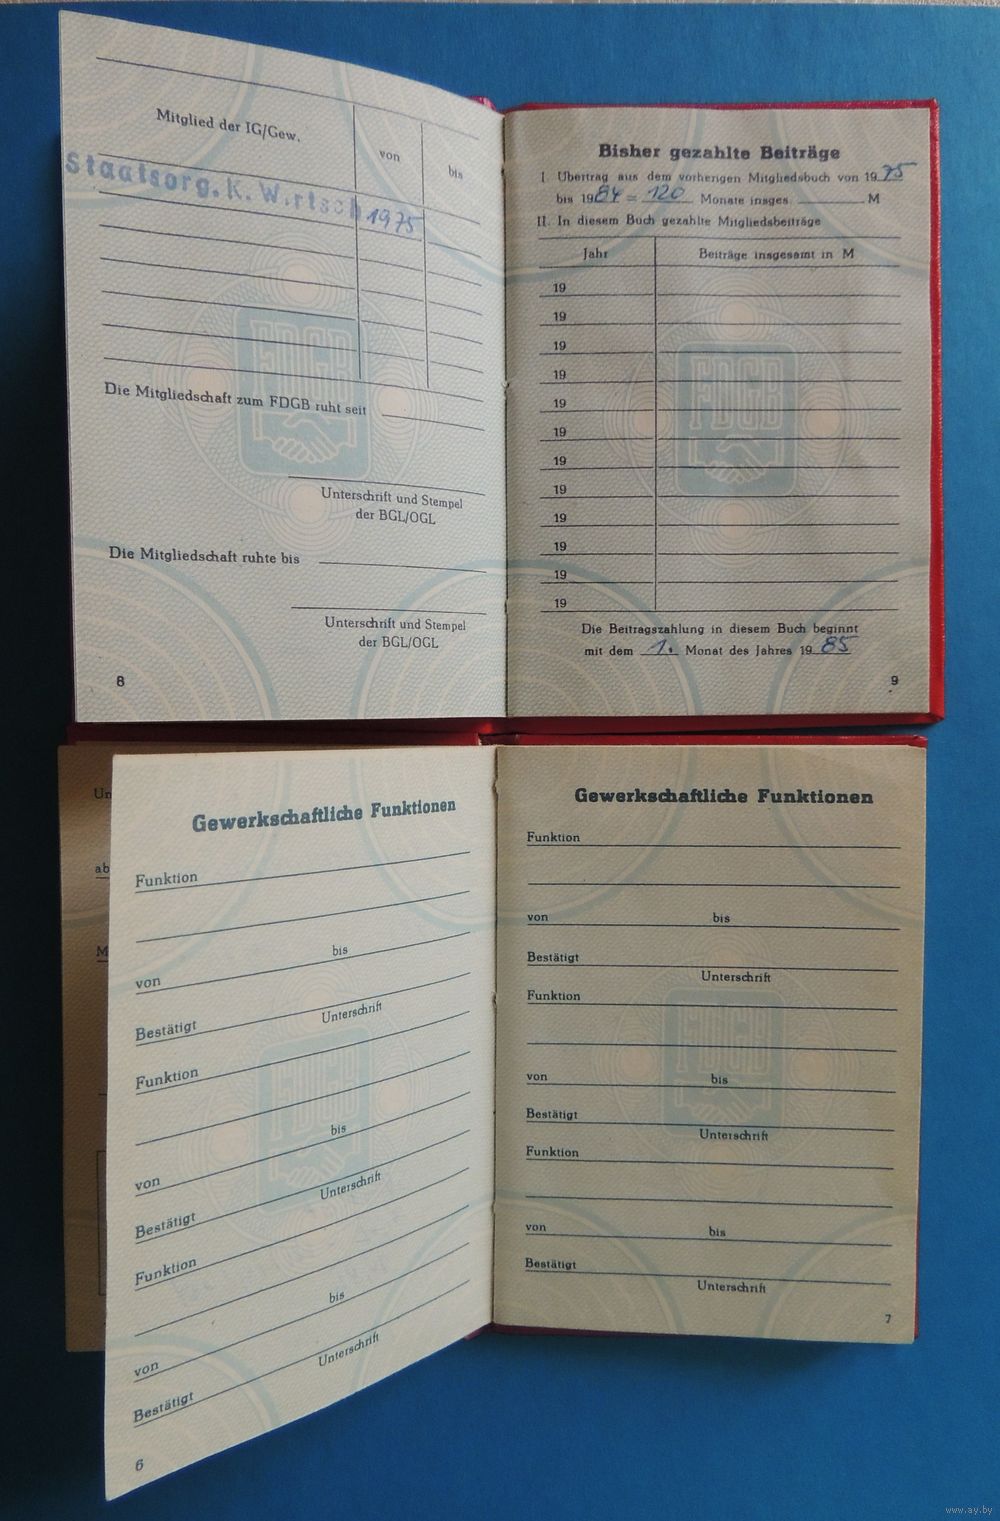 Mitglied der IG/Gew.
von
bis
Staatsorg. K. Wirtsch 1975
Die Mitgliedschaft zum FDGB ruht seit
Unterschrift und Stempel
der BGL/OGL
Die Mitgliedschaft ruhte bis
Unterschrift und Stempel
der BGL/OGL
8
FDGB
Bisher gezahlte Beiträge
I. Übertrag aus dem vorherigen Mitgliedsbuch von 1975
bis 1984 = 120 Monate insges. M
II. In diesem Buch gezahlte Mitgliedsbeiträge
Jahr Beiträge insgesamt in M
19
19
19
19
19
19
19
19
19
19
19
19
FDGB
Die Beitragszahlung in diesem Buch beginnt
mit dem 1. Monat des Jahres 1985
9
Un
ab
M
Gewerkschaftliche Funktionen
Funktion
von bis
Bestätigt
Unterschrift
Funktion
von bis
Bestätigt
Unterschrift
Funktion
von bis
Bestätigt
Unterschrift
FDGB
6
Gewerkschaftliche Funktionen
Funktion
von bis
Bestätigt
Unterschrift
Funktion
von bis
Bestätigt
Unterschrift
Funktion
von bis
Bestätigt
Unterschrift
FDGB
7
www.ay.by